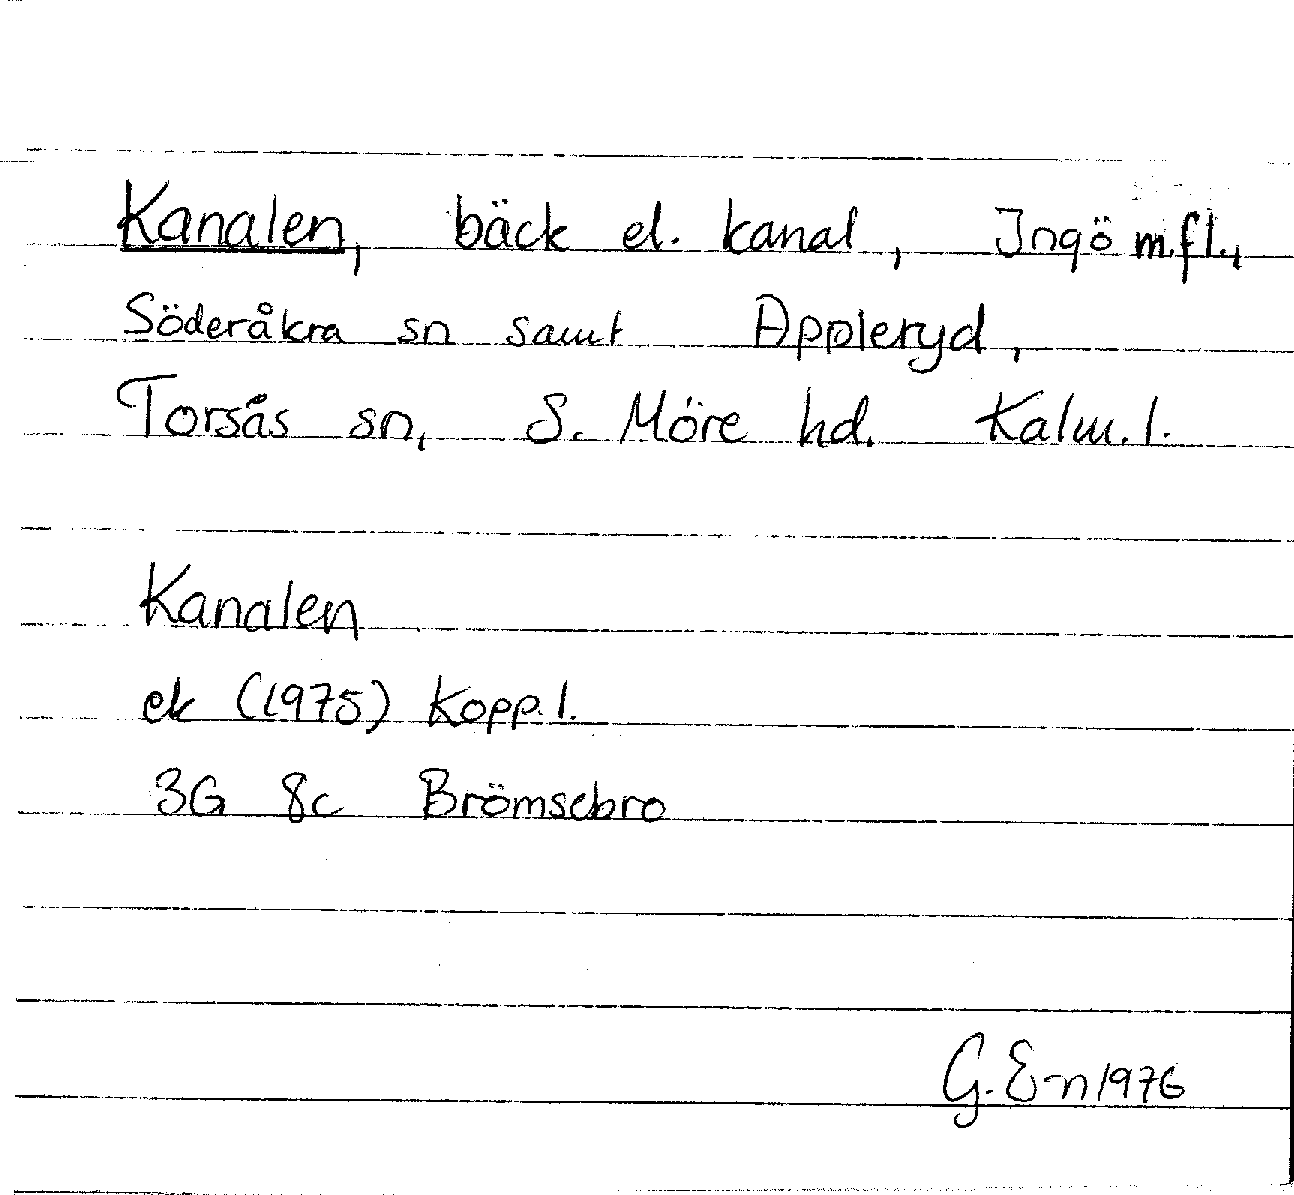 Kanalen, bäck el. kanal, Ingö m.fl.,
Söderåkra sn samt Appleryd,
Torsås sn, S. Möre hd. Kalm. l.
Kanalen
ek (1975) Kopp. l.
3G 8c Brömsebro
G. E-n 1976